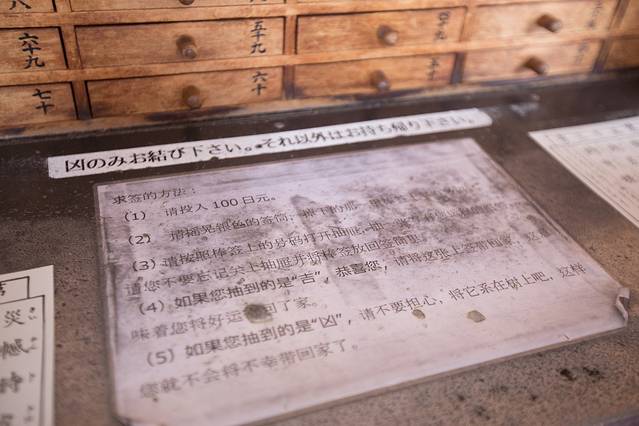 八
五十九
四十九
六十九
六十
五十
七十
凶のみお結び下さい。それ以外はお持ち帰り下さい。
求签的方法：
（1） 请投入 100 日元。
（2） 请摇晃银色的签筒，
（3）请按照棒签上的号码打开抽屉，
请您不要忘记关上抽屉并将棒签放回签筒里。
（4）如果您抽到的是“吉”，恭喜您，请将这张上签带回家，这意
味着您将好运 回了家。
（5）如果您抽到的是“凶”，请不要担心，将它系在树上吧，这样
您就不会将不幸带回家了。
災